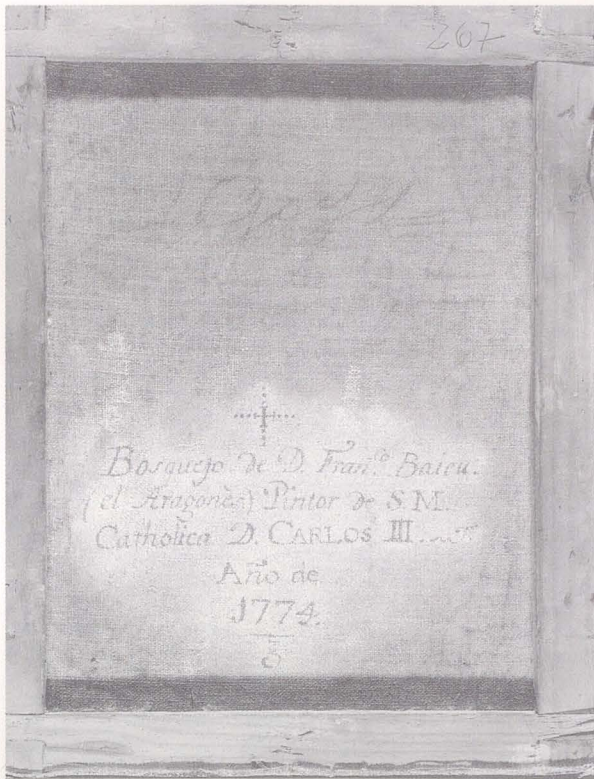 267
Bosquejo de D. Fran.º Baieu.
(el Aragonès) Pintor de S. M.
Catholica D. CARLOS III.
Año de
1774.